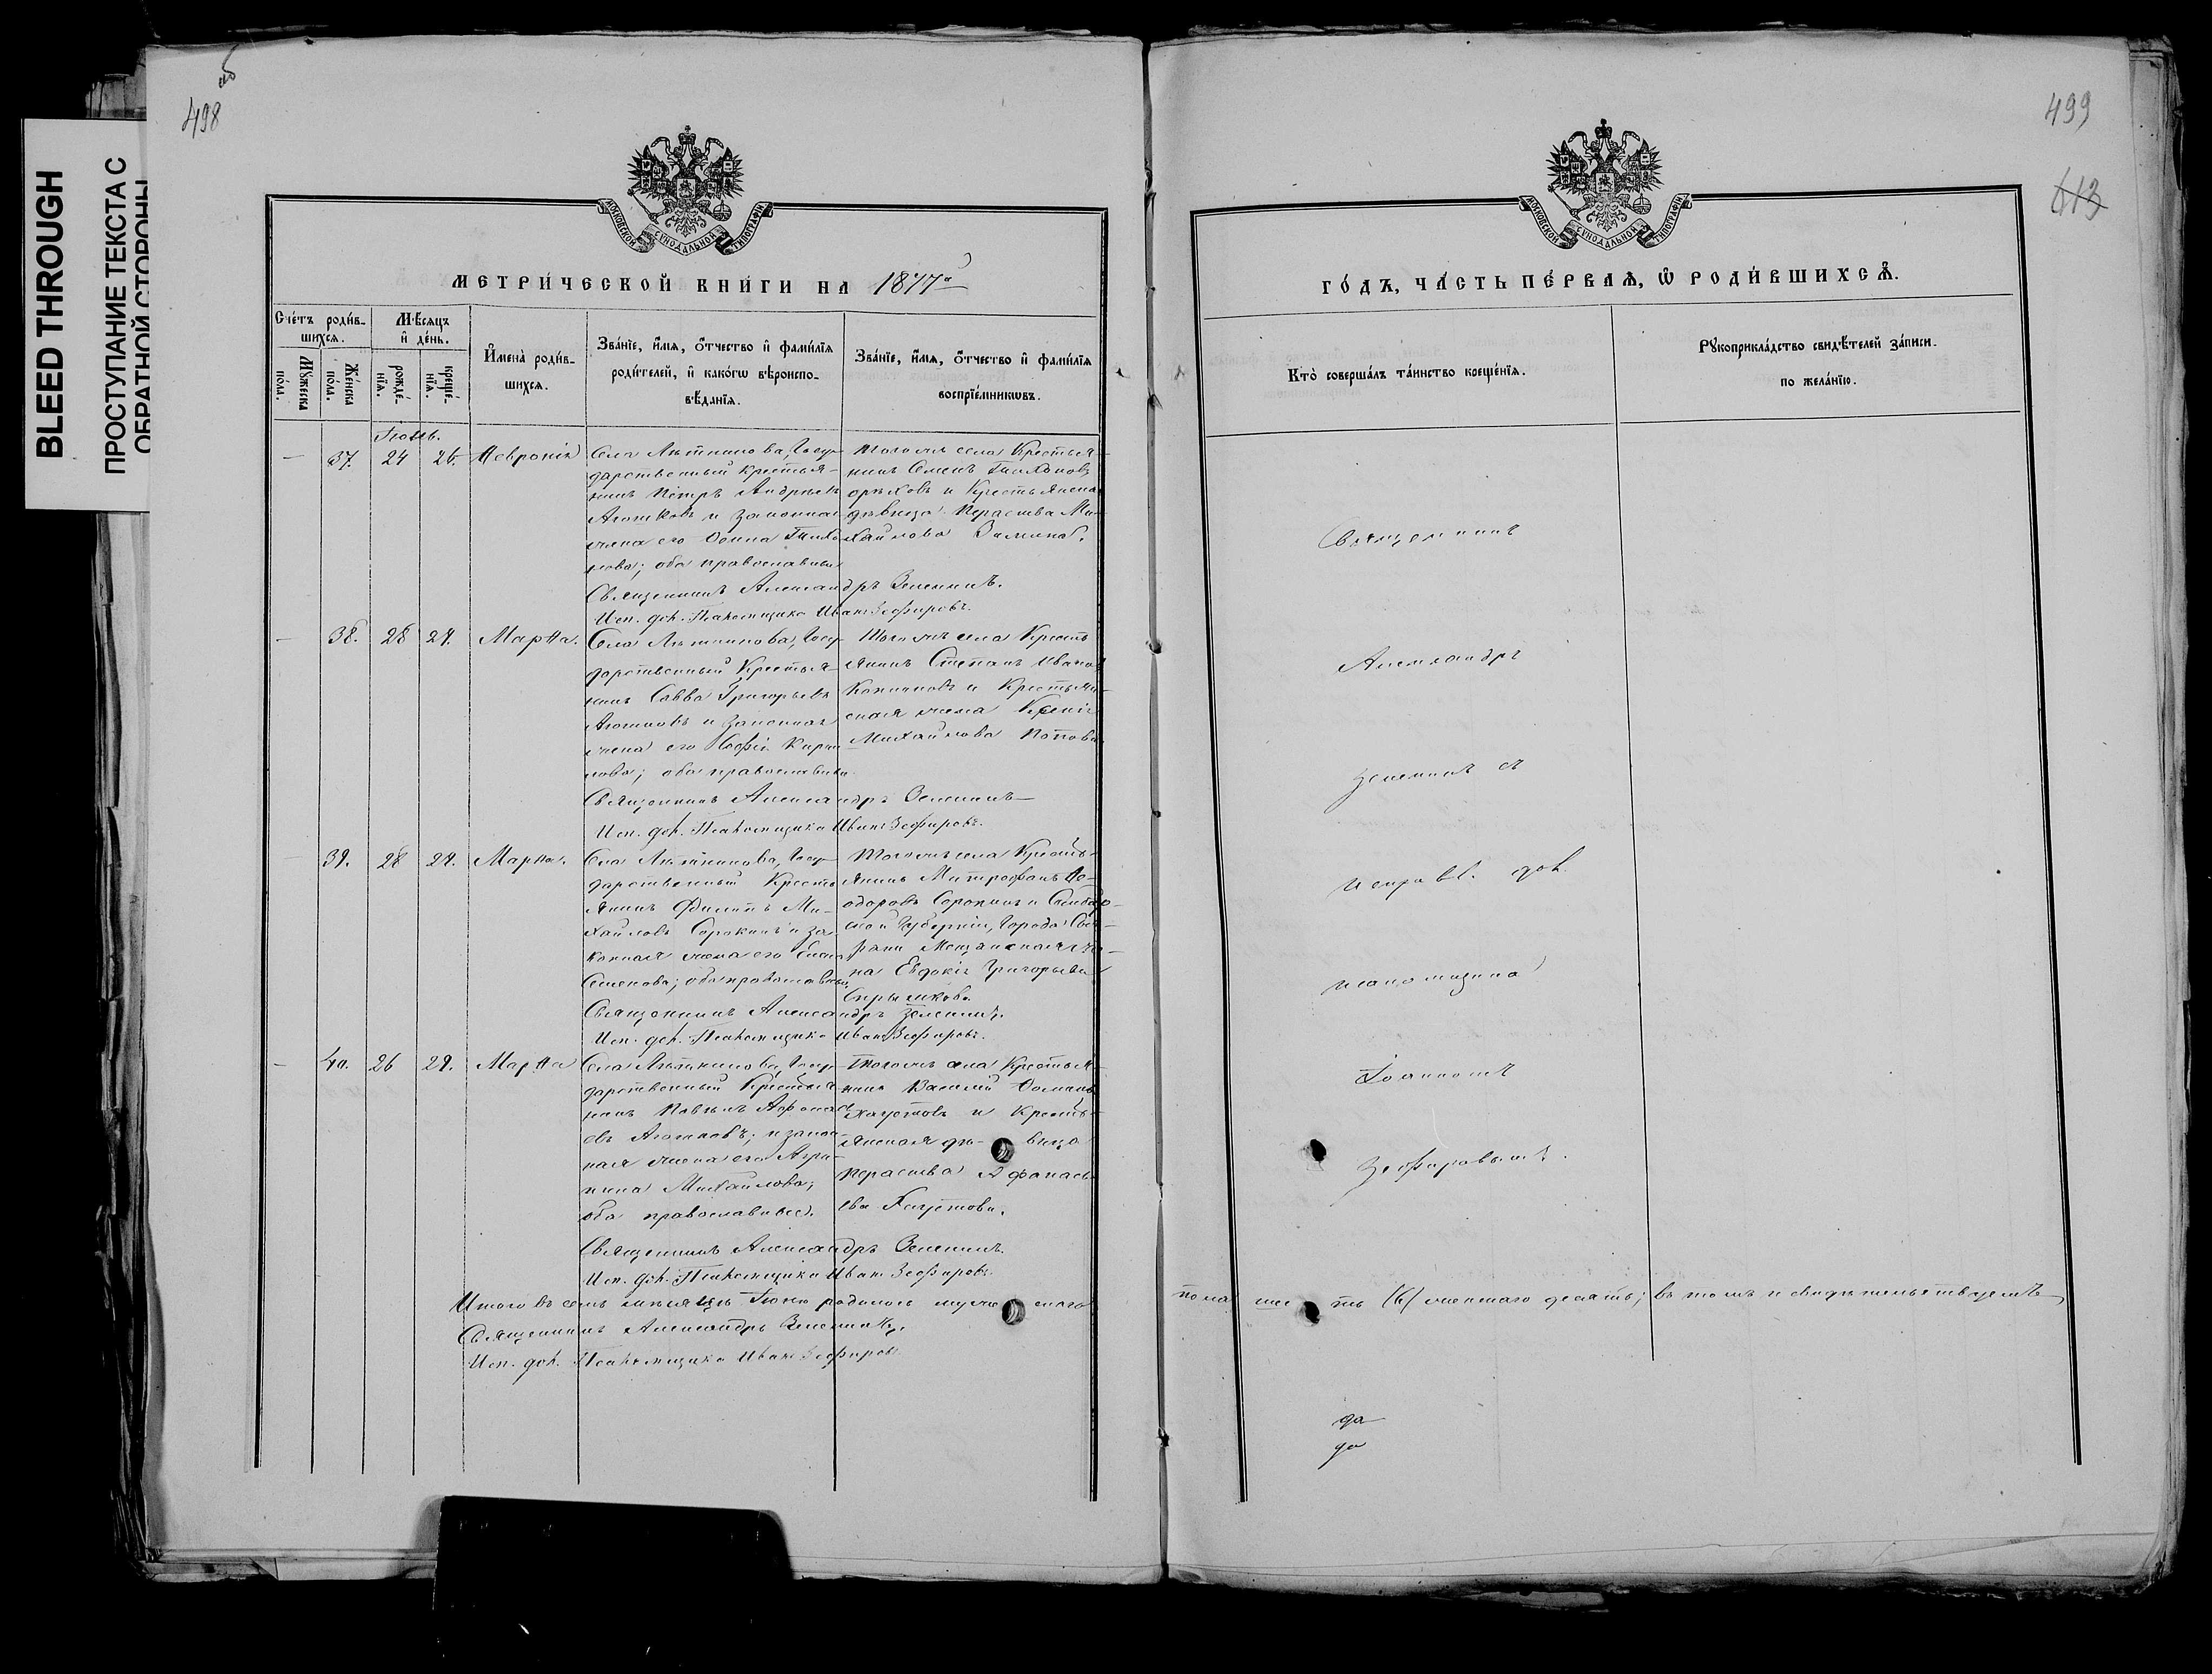 BLEED THROUGH
ПРОСТУПАНИЕ ТЕКСТА С
ОБРАТНОЙ СТОРОНЫ
498
об
МОСКОВСКОЙ СѴНОДАЛЬНОЙ ТИПОГРАФІИ
МЕТРИ́ЧЕСКОЙ КНИ́ГИ НА 1877
Сче́тъ роди́в-
шихся.
Мꙋ́жеска
по́ла.
Же́нска
по́ла.
Мѣ́сяцъ
и҆ де́нь.
рожде́-
нїя.
креще́-
нїя.
И҆мена̀ роди́в-
шихся.
Зва́нїе, и҆́мя, ѻ҆́тчество и҆ фами́лїя
роди́телей, и҆ како́гѡ вѣроиспо-
вѣ́данїя.
Зва́нїе, и҆́мя, ѻ҆́тчество и҆ фами́лїя
воспрїе́мникѡвъ.
Іюнь.
— 37. 24 26. Ѳевронія
Села Лѣтникова, Госу-
дарственный крестья-
нинъ Петръ Андреевъ
Агошковъ и законная
жена его Домна Тихо-
нова; оба православные
Того же села Крестья-
нинъ Семенъ Тихоновъ
Орѣховъ и Крестьянская
дѣвица Параскева Ми-
хайлова
Священникъ Александръ Зеленинъ.
Исп. дол. Псаломщика Иванъ Зефировъ.
— 38. 28 29. Марѳа.
Села Лѣтникова, Госу-
дарственный Крестья-
нинъ Савва Григорьевъ
Агошковъ и законная
жена его Софія Кири-
лова; оба православные.
Того же села Кресть-
янинъ Степанъ Ивановъ
и Крестьян-
ская жена Ксенія
Михайлова Попова
Священникъ Александръ Зеленинъ
Исп. дол. Псаломщика Иванъ Зефировъ.
— 39. 28 29. Марѳа.
Села Лѣтникова, Госу-
дарственный Кресть-
янинъ Филиппъ Ми-
хайловъ Сорокинъ и за-
конная жена его Елена
Семенова; оба православные
Того же села Кресть-
янинъ Митрофанъ Ѳе-
одоровъ Сорокинъ и Симбир-
ской Губерніи, Города Сыз-
рани Мещанская же-
на Евдокія Григорьева
Священникъ Александръ Зеленинъ.
Исп. дол. Псаломщика Иванъ Зефировъ.
— 40. 26 29. Марѳа
Села Лѣтникова, Госу-
дарственный Крестья-
нинъ Павелъ Афонась-
евъ Агошковъ; и закон-
ная жена его Агри-
пина Михайлова;
оба православные.
Того же села Крестья-
нинъ Василій
Хаустовъ и Кресть-
янская дѣвица
Параскева Афанась-
ева Хаустова.
Священникъ Александръ Зеленинъ.
Исп. дол. Псаломщика Иванъ Зефировъ.
Итого въ семъ мѣсяцѣ Іюнѣ родилось мужескаго
Священникъ Александръ Зеленинъ.
Исп. дол. Псаломщика Иванъ Зефировъ
499
613
МОСКОВСКОЙ СѴНОДАЛЬНОЙ ТИПОГРАФІИ
ГО́ДЪ, ЧА́СТЬ ПЕ́РВАѦ, Ѡ҆ РОДИ́ВШИХСѦ.
Кто̀ соверша́лъ та́инство креще́нїя.
Рꙋкоприкла́дство свидѣ́телей за́писи.
по жела́нїю.
Священникъ
Александръ
Зеленинъ съ
исправл. дол.
псаломщика
Іоанномъ
Зефировымъ.
пола шесть (6) женскаго десять; въ томъ и свидѣтельствуемъ
да
да